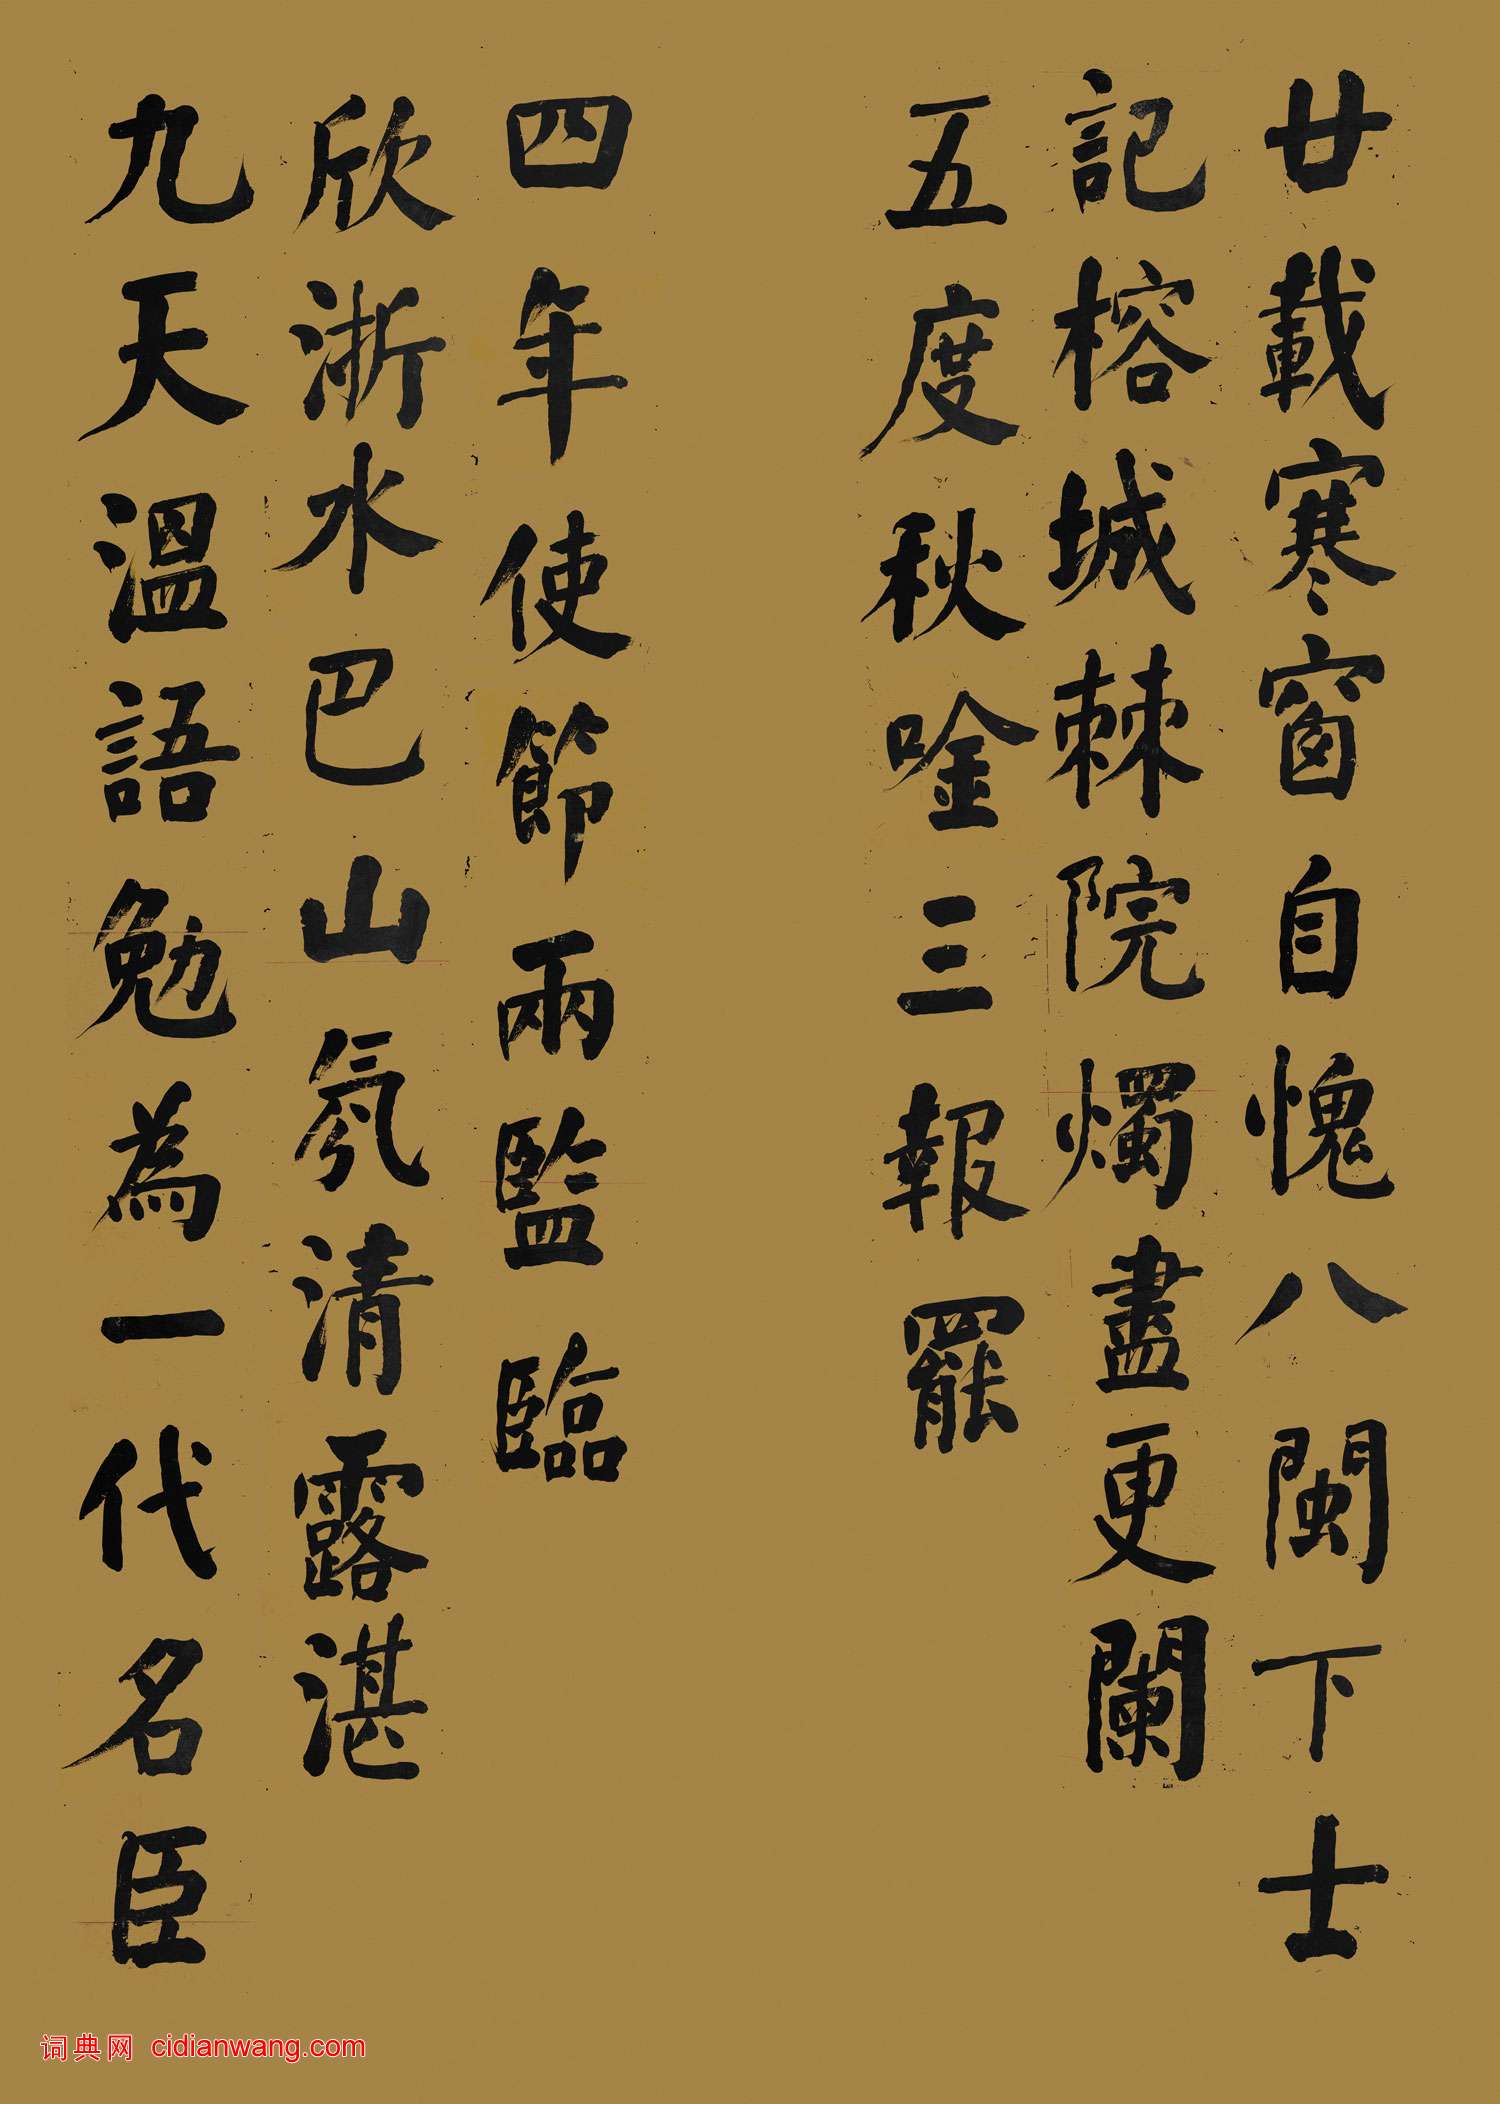 廿載寒窗自愧八閩下士
記榕城棘院燭盡更闌
五度秋唫三報罷
四年使節兩監臨
欣浙水巴山氛清露湛
九天溫語勉為一代名臣
词典网 cidianwang.com